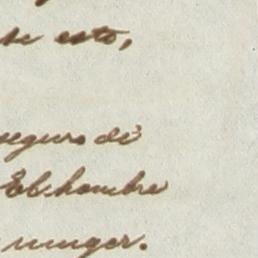 de esto,
seguro de
El hombre
mujer.